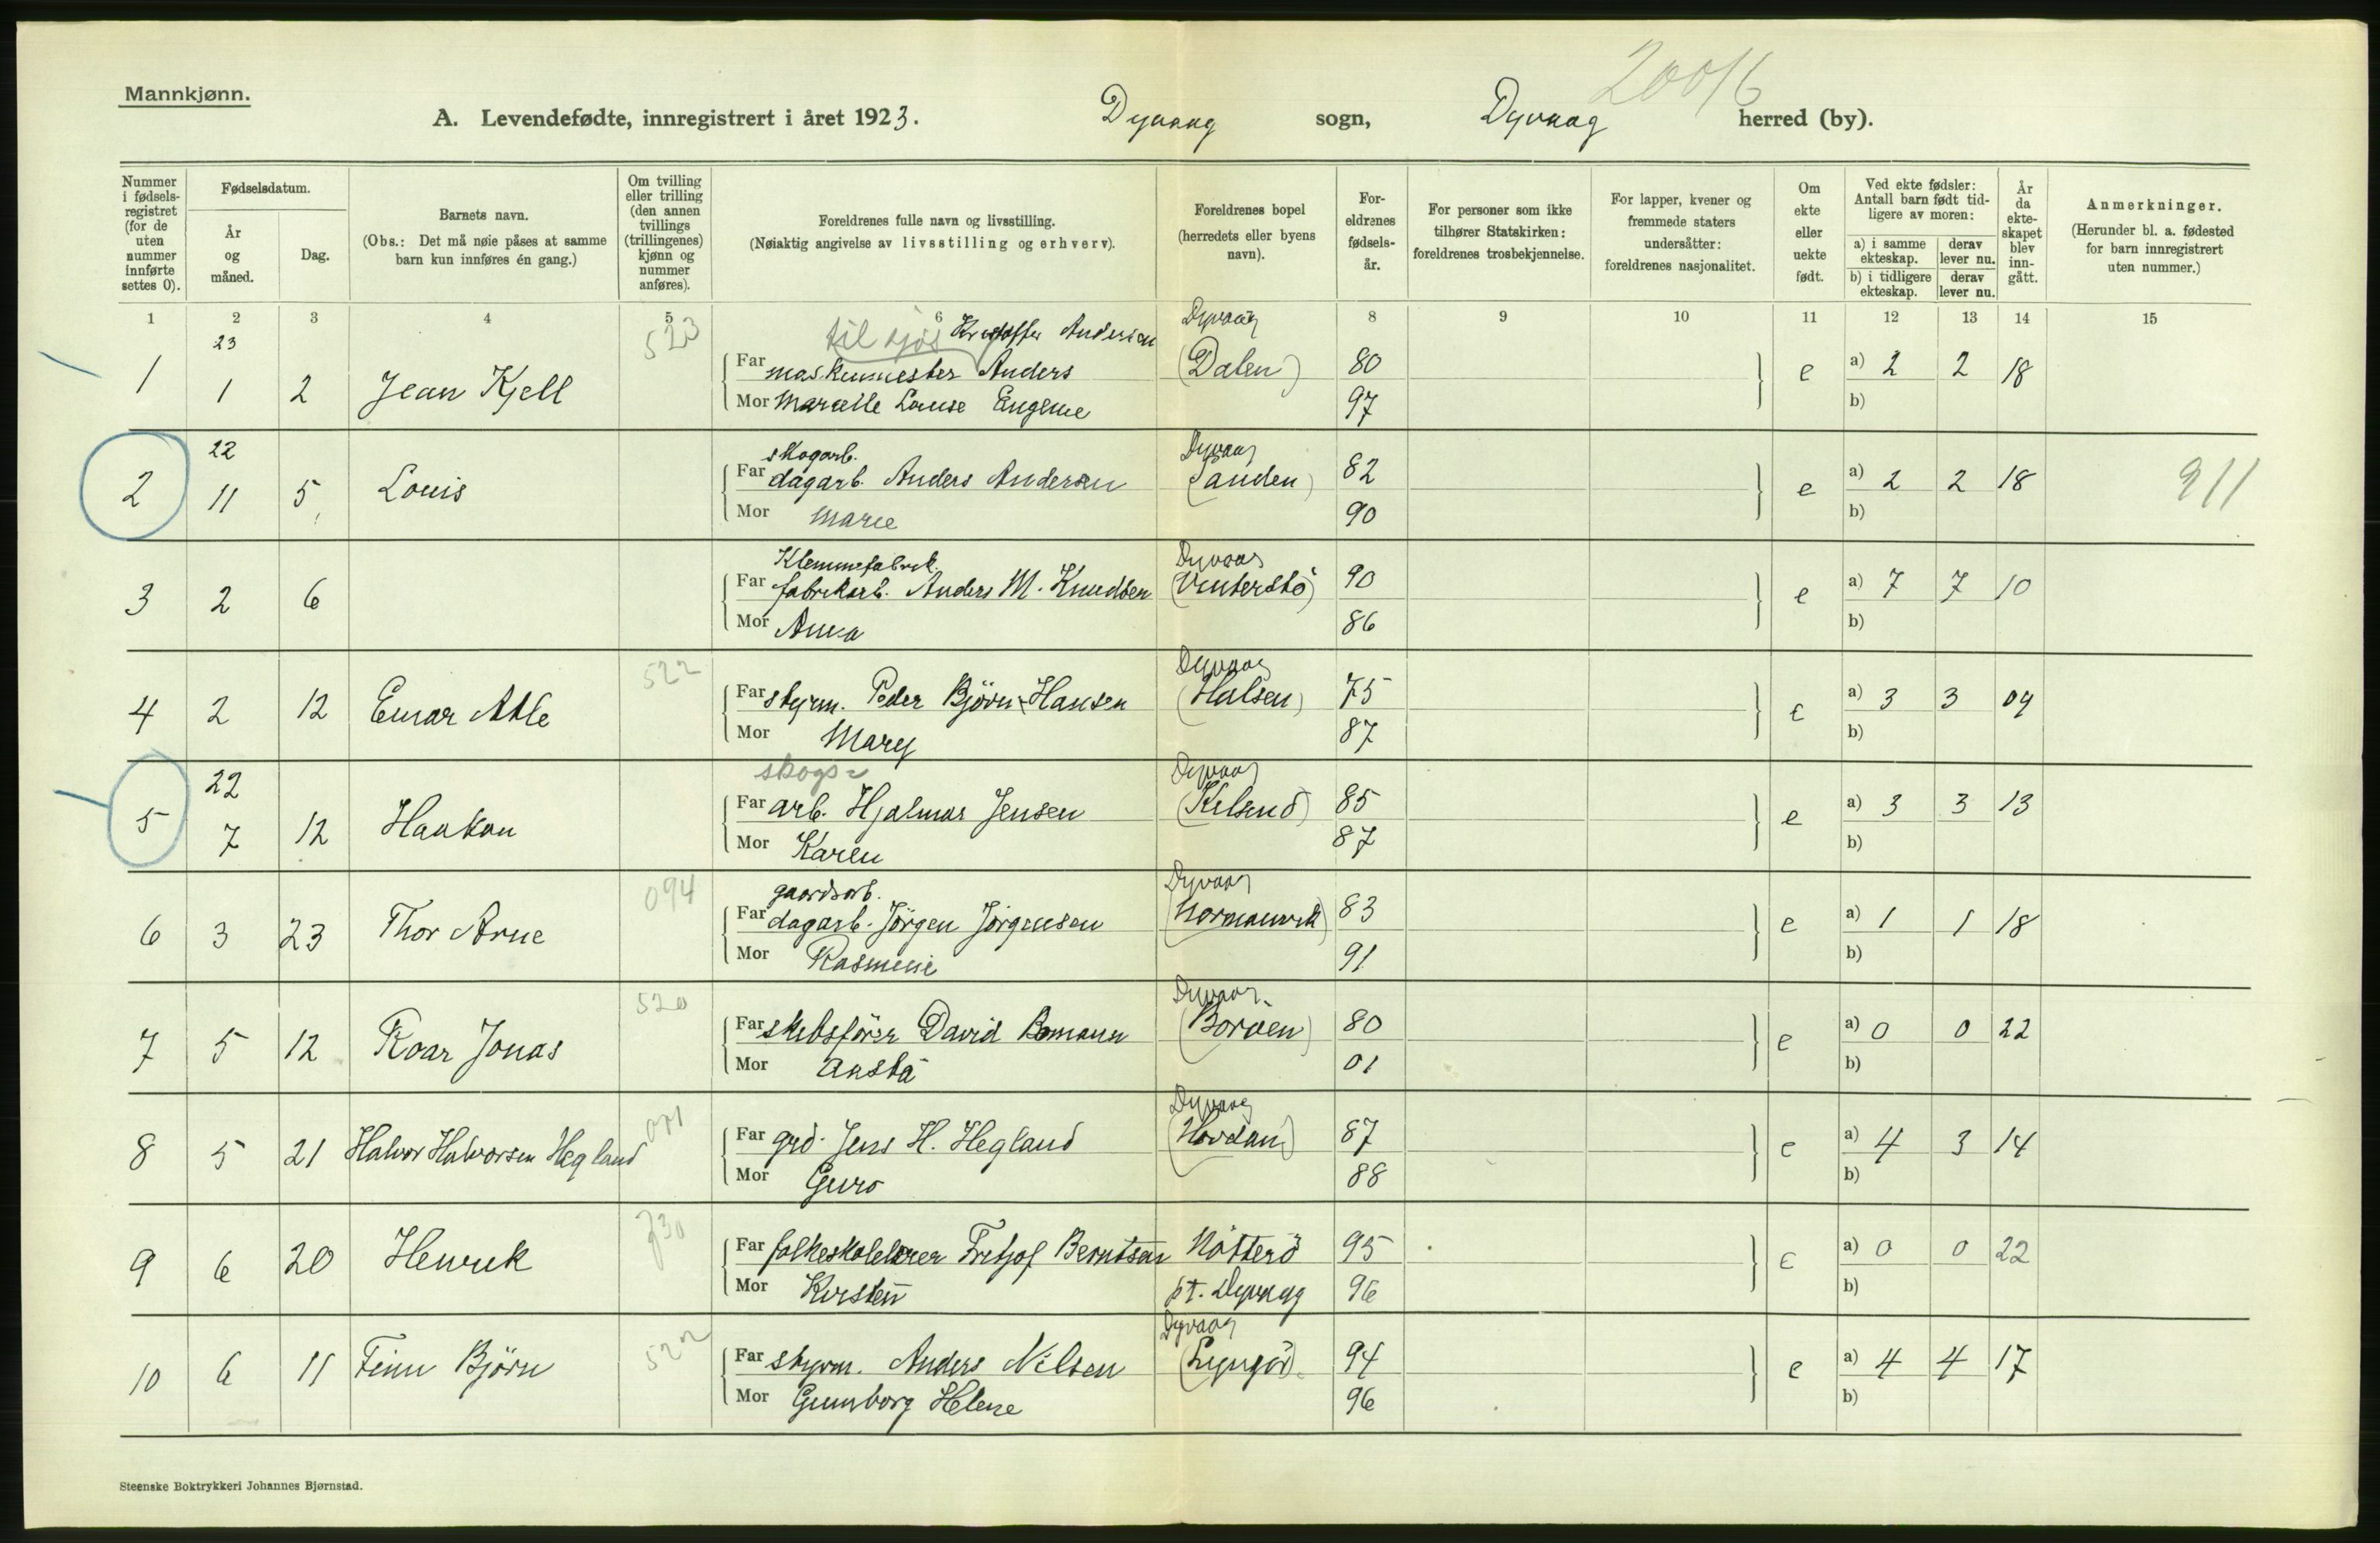 2001/6
Mannkjønn.
A. Levendefødte, innregistrert i året 1923. Dyvaag sogn, Dyvaag herred (by).
Nummer i fødsels-registret (for de uten nummer innførte settes 0).
Fødselsdatum.
År og måned.
Dag.
Barnets navn.
(Obs.: Det må nøie påses at samme barn kun innføres én gang.)
Om tvilling eller trilling (den annen tvillings (trillingenes) kjønn og nummer anføres).
Foreldrenes fulle navn og livsstilling.
(Nøiaktig angivelse av livsstilling og erhverv).
Foreldrenes bopel (herredets eller byens navn).
For-eldrenes fødsels-år.
For personer som ikke tilhører Statskirken: foreldrenes trosbekjennelse.
For lapper, kvener og fremmede staters undersåtter: foreldrenes nasjonalitet.
Om ekte eller uekte født.
Ved ekte fødsler: Antall barn født tid-ligere av moren:
a) i samme ekteskap. derav lever nu.
b) i tidligere ekteskap. derav lever nu.
År da ekte-skapet blev inn-gått.
Anmerkninger.
(Herunder bl. a. fødested for barn innregistrert uten nummer.)
1 2 3 4 5 6 8 9 10 11 12 13 14 15
23 523 til sjøs Kristoffer Andersen Dyvaag
1 1 2 Jean Kjell Far maskinmester Anders (Dalen) 80 e a) 2 2 18
Mor Marcelle Louise Eugenie 97 b)
22 skogarb. Dyvaag
2 11 5 Louis Far dagarb. Anders Andersen (Sanden) 82 e a) 2 2 18 911
Mor Marie 90 b)
Klemmefabrik. Dyvaag
3 2 6 Far fabrikarb. Anders M. Knudsen (Vinterstø) 90 e a) 7 7 10
Mor Anna 86 b)
522 Dyvaag
4 2 12 Einar Atle Far styrm. Peder Bjørn Hansen (Halsen) 75 e a) 3 3 09
Mor Mary 87 b)
22 skogs= Dyvaag
5 7 12 Haakon Far arb. Hjalmar Jensen 85 e a) 3 3 13
Mor Karen 87 b)
094 gaardsarb. Dyvaag
6 3 23 Thor Arne Far dagarb. Jørgen Jørgensen (Normannvik) 83 e a) 1 1 18
Mor Rasmine 91 b)
520 Dyvaag
7 5 12 Roar Jonas Far skibsfører David Bomann (Borøen) 80 e a) 0 0 22
Mor Aasta 01 b)
Dyvaag
8 5 21 Halvor Halvorsen Hegland Far grd. Jens H. Hegland (Hovdan) 87 e a) 4 3 14
Mor Guro 88 b)
730
9 6 20 Henrik Far folkeskolelærer Fritjof Berntsen Nøtterö 95 e a) 0 0 22
Mor Kirsten pt. Dyvaag 96 b)
522 Dyvaag
10 6 11 Finn Bjørn Far styrm. Anders Nilsen (Lyngør) 94 e a) 4 4 17
Mor Gunvborg Helene 96 b)
Steenske Boktrykkeri Johannes Bjørnstad.